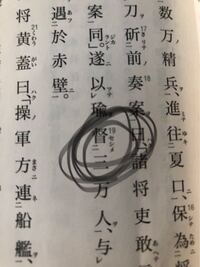 数万精兵、進往夏口、保為将
刀斫前奏案曰、諸将吏敢
案同。遂以瑜督三万人、与
遇於赤壁。
将黄蓋曰、「操軍方連船艦、